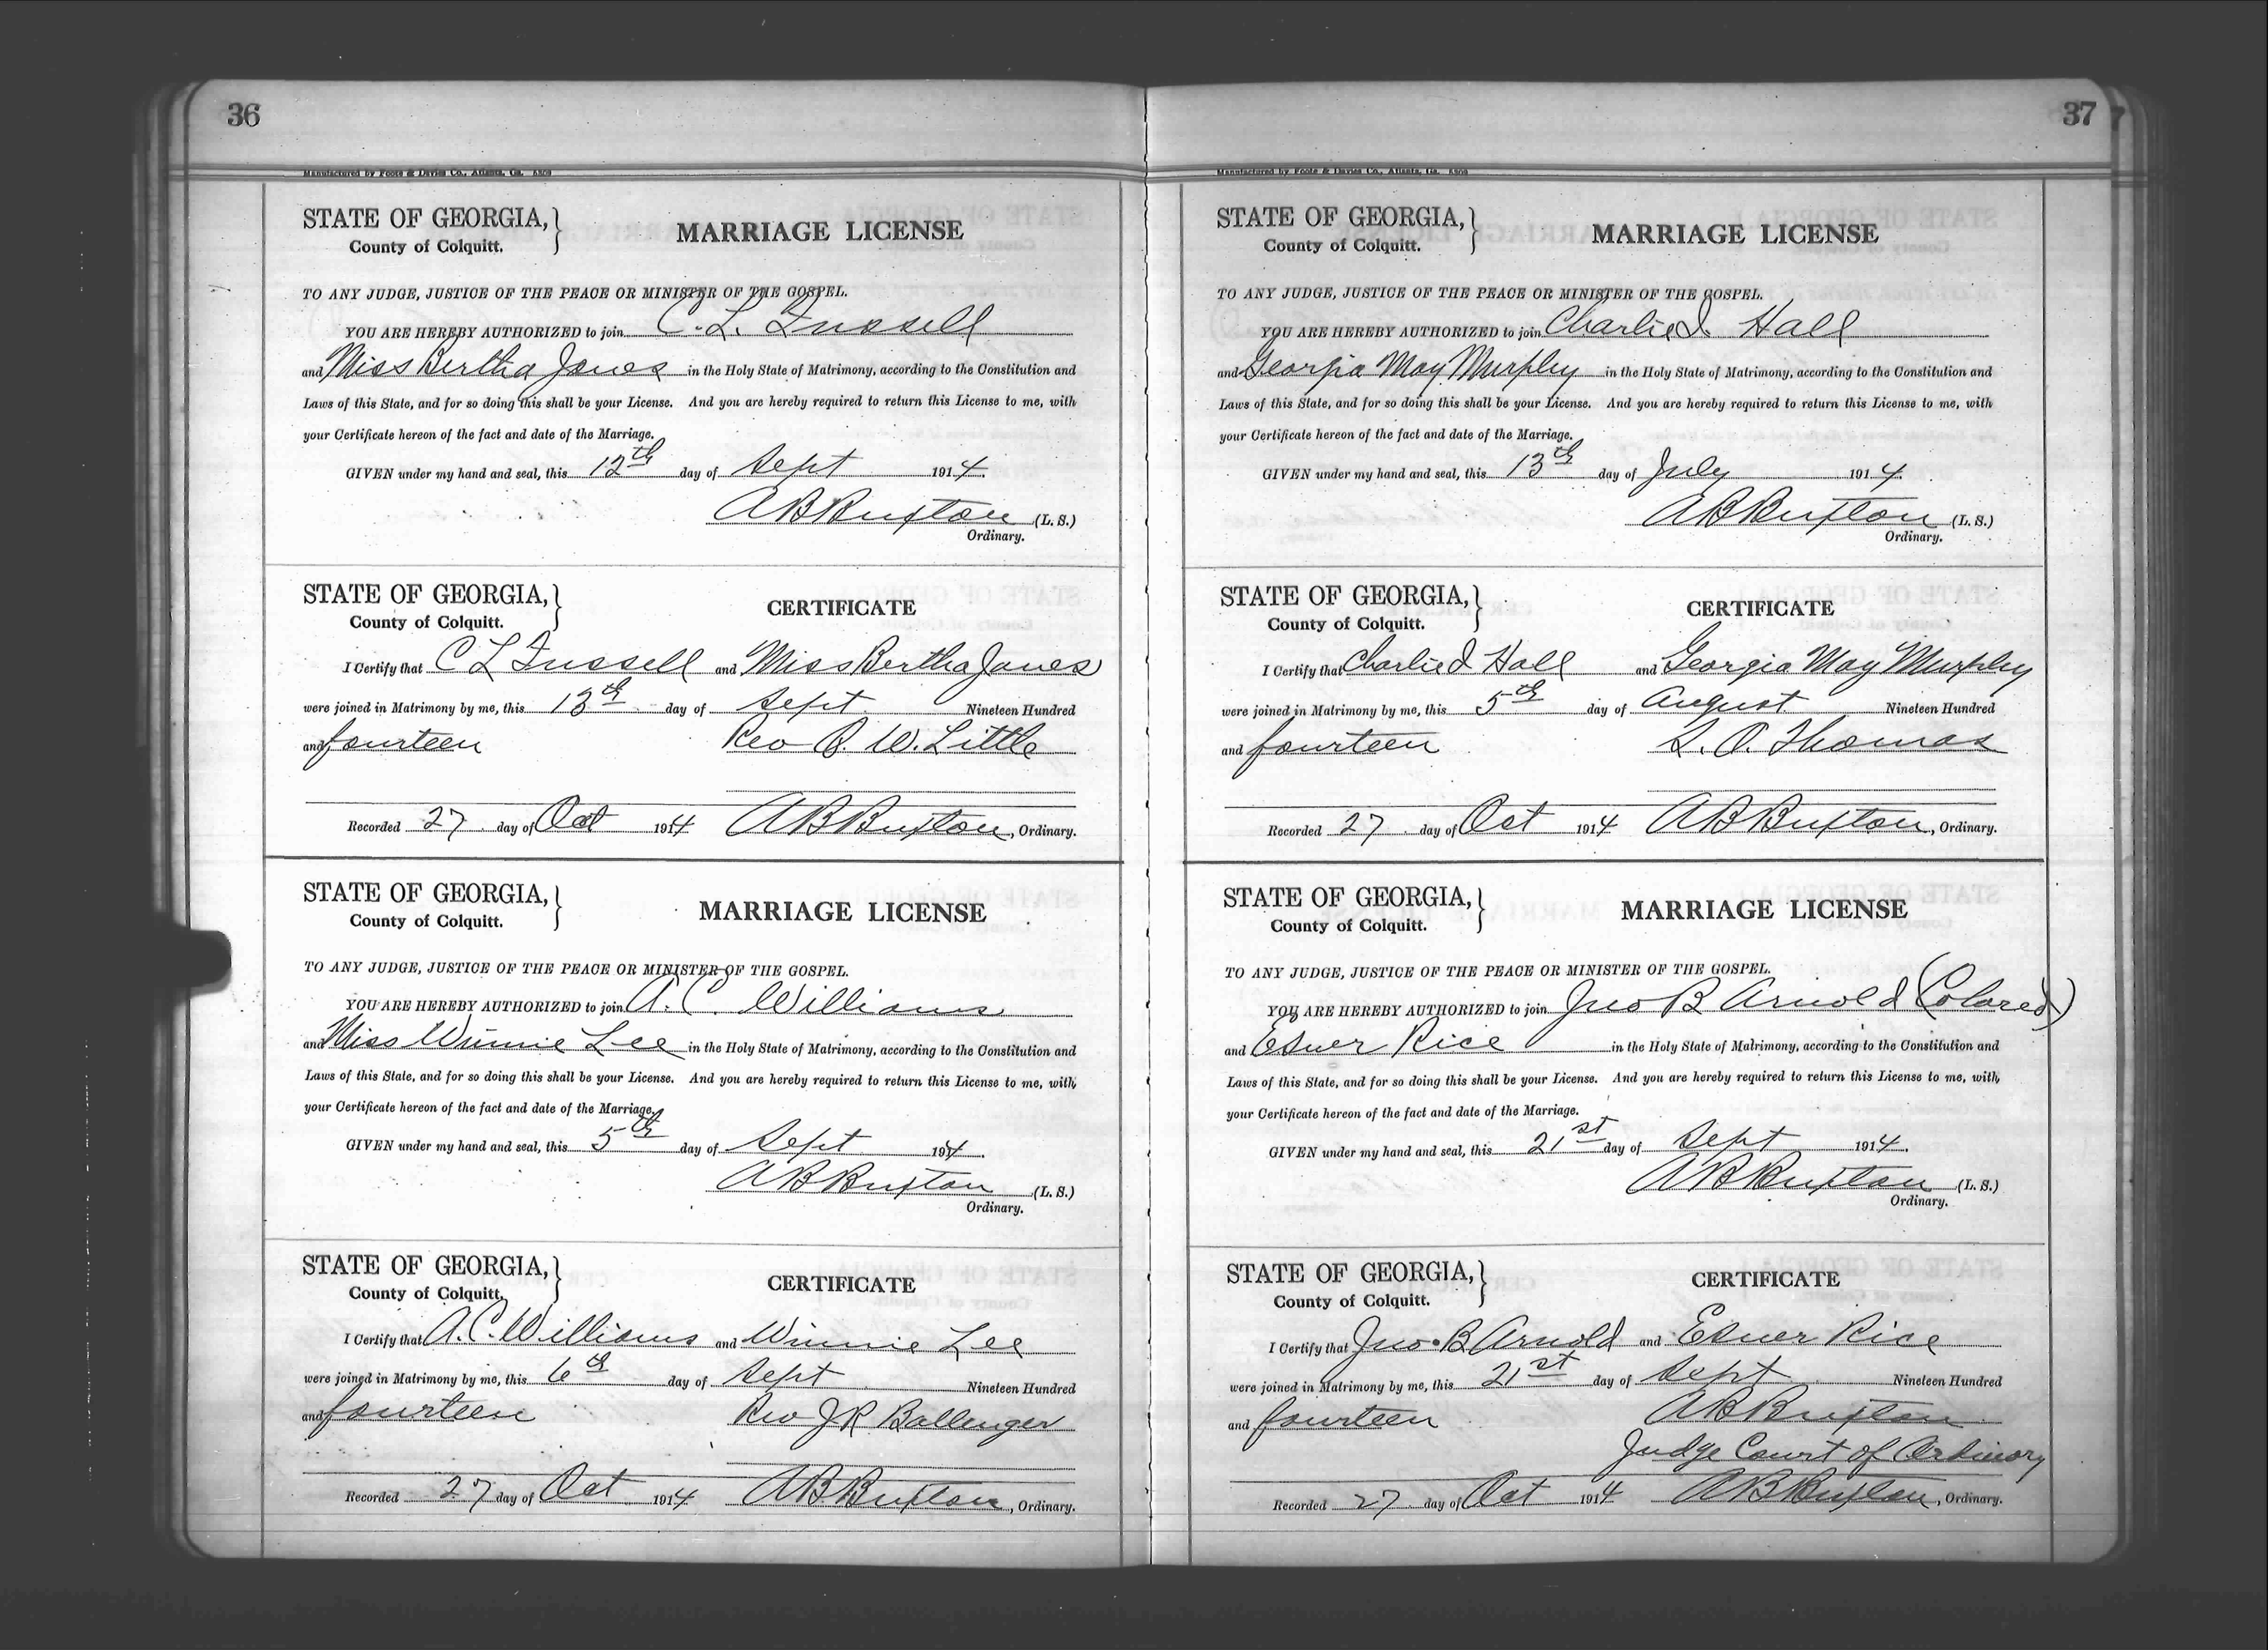 36
Manufactured by Foote & Davies Co., Atlanta, Ga.
STATE OF GEORGIA,
County of Colquitt.
MARRIAGE LICENSE
TO ANY JUDGE, JUSTICE OF THE PEACE OR MINISTER OF THE GOSPEL.
YOU ARE HEREBY AUTHORIZED to join C. L. Fussell
and Miss Bertha Jones in the Holy State of Matrimony, according to the Constitution and
Laws of this State, and for so doing this shall be your License. And you are hereby required to return this License to me, with
your Certificate hereon of the fact and date of the Marriage.
GIVEN under my hand and seal, this 12th day of Sept 1914.
A B Buxton (L. S.)
Ordinary.
STATE OF GEORGIA,
County of Colquitt.
CERTIFICATE
I Certify that C L Fussell and Miss Bertha Jones
were joined in Matrimony by me, this 13th day of Sept. Nineteen Hundred
and fourteen Rev R. W. Little
Recorded 27 day of Oct 1914 A B Buxton, Ordinary.
STATE OF GEORGIA,
County of Colquitt.
MARRIAGE LICENSE
TO ANY JUDGE, JUSTICE OF THE PEACE OR MINISTER OF THE GOSPEL.
YOU ARE HEREBY AUTHORIZED to join A. C. Williams
and Miss Winnie Lee in the Holy State of Matrimony, according to the Constitution and
Laws of this State, and for so doing this shall be your License. And you are hereby required to return this License to me, with
your Certificate hereon of the fact and date of the Marriage.
GIVEN under my hand and seal, this 5th day of Sept 1914.
A B Buxton (L. S.)
Ordinary.
STATE OF GEORGIA,
County of Colquitt.
CERTIFICATE
I Certify that A. C. Williams and Winnie Lee
were joined in Matrimony by me, this 6th day of Sept Nineteen Hundred
and fourteen Rev J R Ballenger
Recorded 27 day of Oct 1914 A B Buxton, Ordinary.
37
Manufactured by Foote & Davies Co., Atlanta, Ga.
STATE OF GEORGIA,
County of Colquitt.
MARRIAGE LICENSE
TO ANY JUDGE, JUSTICE OF THE PEACE OR MINISTER OF THE GOSPEL.
YOU ARE HEREBY AUTHORIZED to join Charlie J. Hall
and Georgia May Murphy in the Holy State of Matrimony, according to the Constitution and
Laws of this State, and for so doing this shall be your License. And you are hereby required to return this License to me, with
your Certificate hereon of the fact and date of the Marriage.
GIVEN under my hand and seal, this 13th day of July 1914.
A B Buxton (L. S.)
Ordinary.
STATE OF GEORGIA,
County of Colquitt.
CERTIFICATE
I Certify that Charlie J Hall and Georgia May Murphy
were joined in Matrimony by me, this 5th day of August Nineteen Hundred
and fourteen L. O. Thomas
Recorded 27 day of Oct 1914 A B Buxton, Ordinary.
STATE OF GEORGIA,
County of Colquitt.
MARRIAGE LICENSE
TO ANY JUDGE, JUSTICE OF THE PEACE OR MINISTER OF THE GOSPEL.
YOU ARE HEREBY AUTHORIZED to join Jno B Arnold (Colored)
and Esner Rice in the Holy State of Matrimony, according to the Constitution and
Laws of this State, and for so doing this shall be your License. And you are hereby required to return this License to me, with
your Certificate hereon of the fact and date of the Marriage.
GIVEN under my hand and seal, this 21st day of Sept 1914.
A B Buxton (L. S.)
Ordinary.
STATE OF GEORGIA,
County of Colquitt.
CERTIFICATE
I Certify that Jno. B Arnold and Esner Rice
were joined in Matrimony by me, this 21st day of Sept Nineteen Hundred
and fourteen A B Buxton
Judge Court of Ordinary
Recorded 27 day of Oct 1914 A B Buxton, Ordinary.